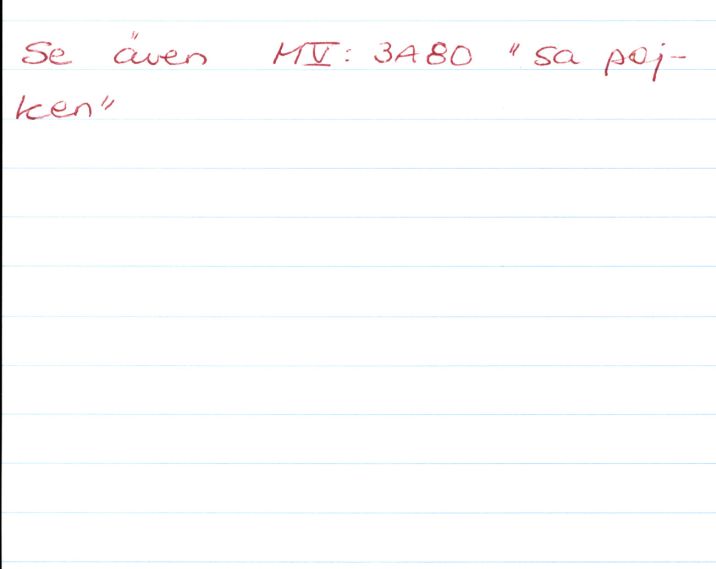 Se även MV: 3A80 "sa poj-
ken"